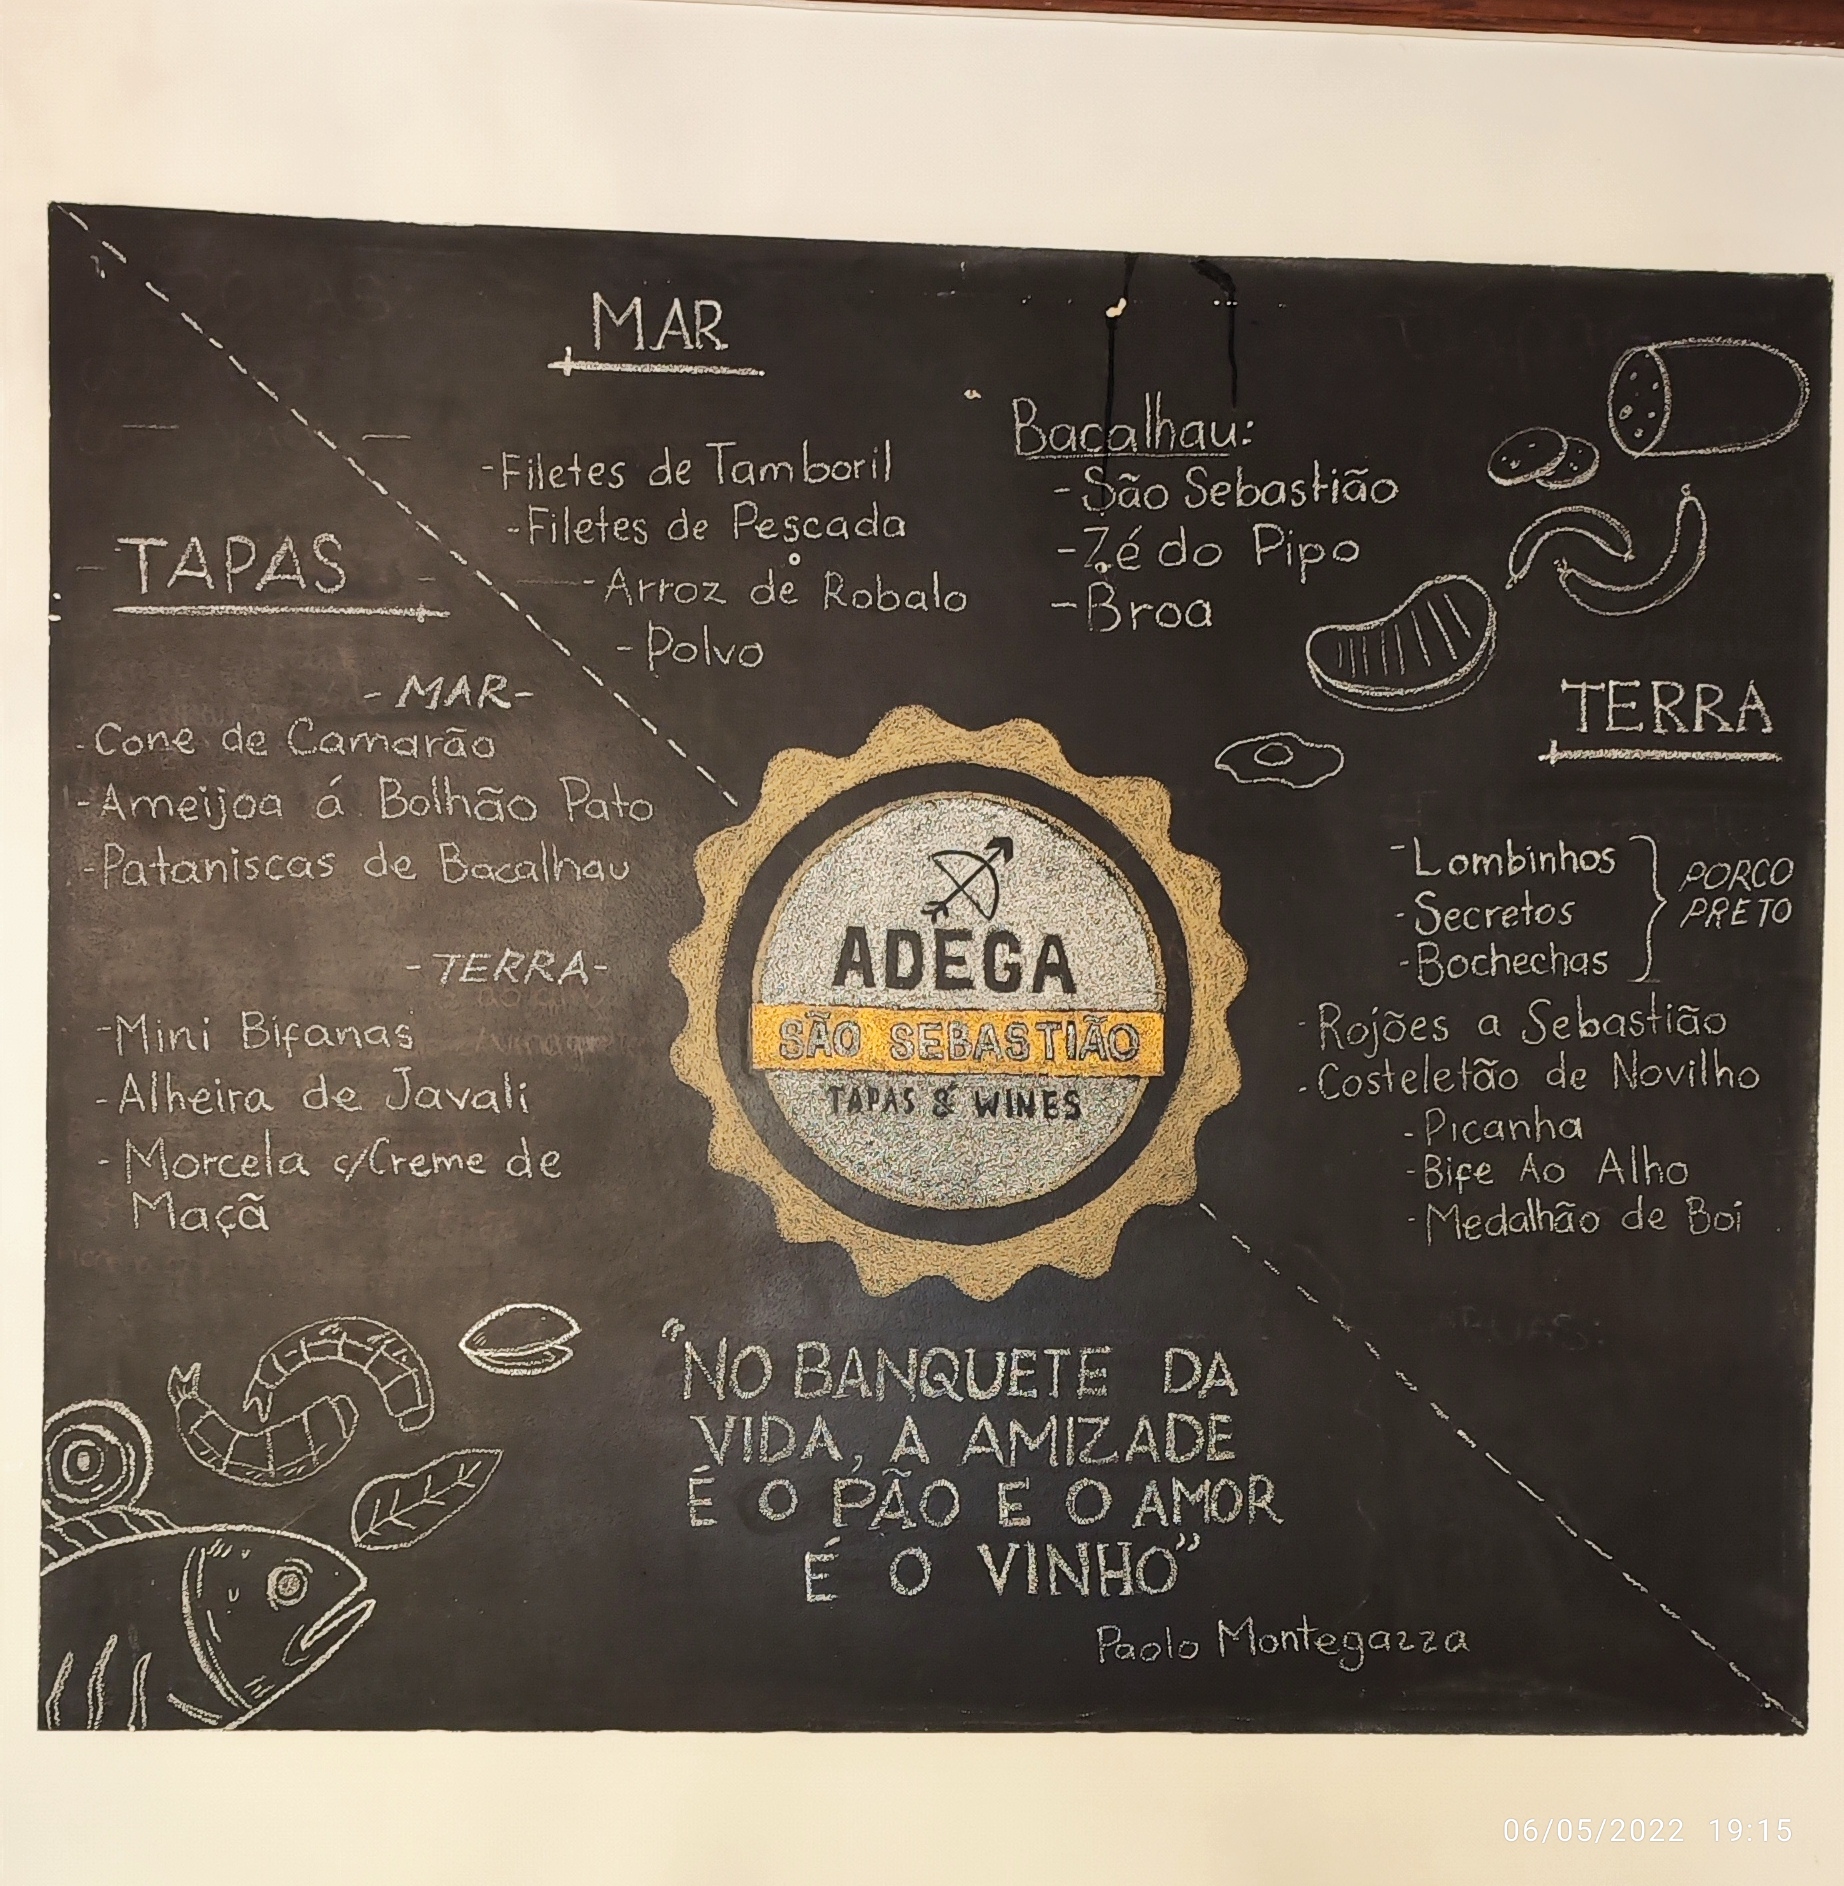 MAR
-Filetes de Tamboril
-Filetes de Pescada
-Arroz de Robalo
-Polvo
Bacalhau:
-São Sebastião
-Zé do Pipo
-Broa
TAPAS
-MAR-
-Cone de Camarão
-Ameijoa á Bolhão Pato
-Pataniscas de Bacalhau
-TERRA-
-Mini Bifanas
-Alheira de Javali
-Morcela c/Creme de
Maçã
TERRA
-Lombinhos
-Secretos
-Bochechas
PORCO
PRETO
-Rojões a Sebastião
-Costeletão de Novilho
-Picanha
-Bife Ao Alho
-Medalhão de Boi
ADEGA
SÃO SEBASTIÃO
TAPAS & WINES
"NO BANQUETE DA
VIDA, A AMIZADE
É O PÃO E O AMOR
É O VINHO"
Paolo Montegazza
06/05/2022 19:15